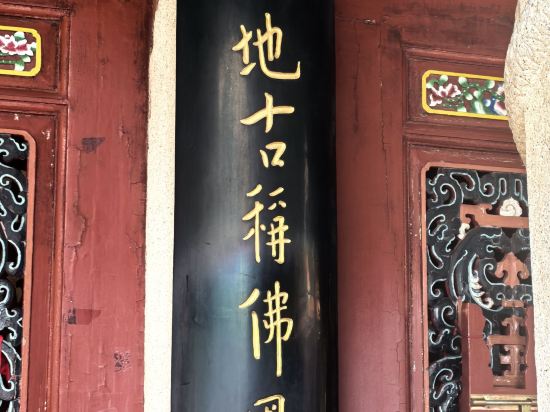 地古稱佛